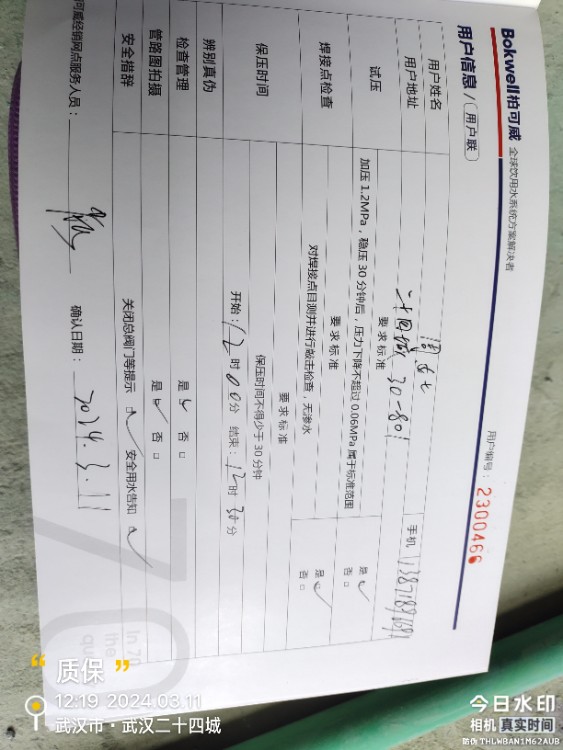 Bokwell柏可威 全球饮用水系统方案解决者
用户信息/用户联
用户编号：2300466
用户姓名 周女士
用户地址 30-801 手机
试压 要求标准
加压1.2MPa，稳压30分钟后，压力下降不超过0.06MPa属于标准范围 是 否
焊接点检查 要求标准
对焊接点目测并进行敲击检查，无渗水 是 否
保压时间 要求标准
保压时间不得少于30分钟
开始：12时00分 结束：12时30分
辨别真伪 是 否
检查管理
管路图拍摄 是 否
安全措辞 关闭总阀门等提示 安全用水告知
可威经销网点服务人员： 确认日期：2024.3.11
In 70
the
qu
“质保”
12:19 2024.03.11
武汉市·武汉二十四城
今日水印
相机 真实时间
防伪 THLWBAN1M62AUB